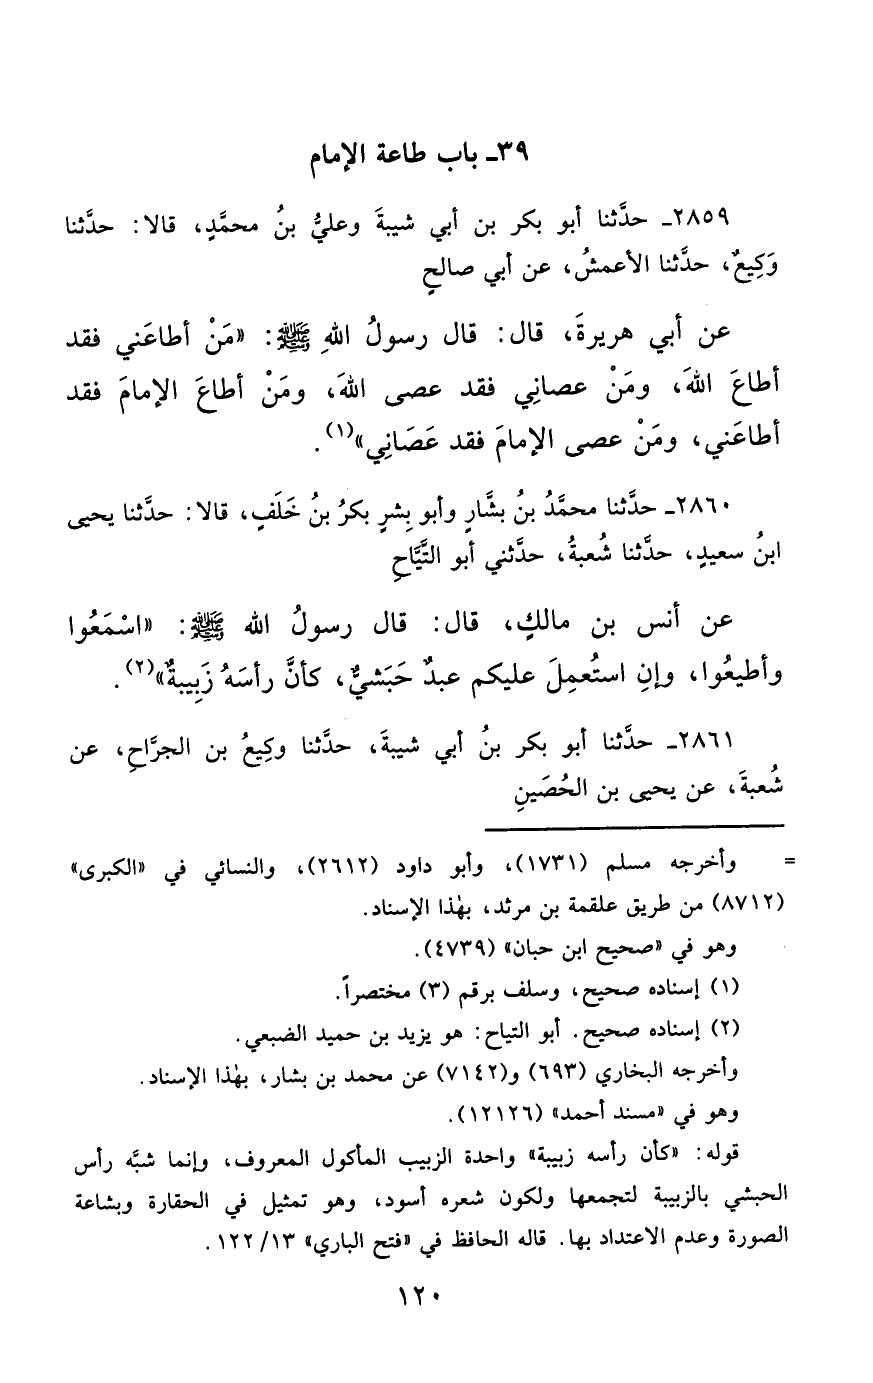 ٣٩ـ باب طاعة الإمام
٢٨٥٩ـ حدَّثنا أبو بكر بن أبي شيبةَ وعليُّ بنُ محمَّدٍ، قالا: حدَّثنا
وَكِيعٌ، حدَّثنا الأعمشُ، عن أبي صالحٍ
عن أبي هريرةَ، قال: قال رسولُ اللهِ ﷺ: «مَنْ أطاعَني فقد
أطاعَ اللهَ، ومَنْ عصانِي فقد عصى اللهَ، ومَنْ أطاعَ الإمامَ فقد
أطاعَني، ومَنْ عصى الإمامَ فقد عَصَانِي»(١).
٢٨٦٠ـ حدَّثنا محمَّدُ بنُ بشَّارٍ وأبو بِشرٍ بكرُ بنُ خَلَفٍ، قالا: حدَّثنا يحيى
ابنُ سعيدٍ، حدَّثنا شُعبةُ، حدَّثني أبو التَّيَّاحِ
عن أنس بن مالكٍ، قال: قال رسولُ الله ﷺ: «اسْمَعُوا
وأطيعُوا، وإنِ استُعمِلَ عليكم عبدٌ حَبَشيٌّ، كأنَّ رأسَهُ زَبِيبةٌ»(٢).
٢٨٦١ـ حدَّثنا أبو بكر بنُ أبي شيبةَ، حدَّثنا وكِيعُ بن الجرَّاحِ، عن
شُعبةَ، عن يحيى بن الحُصَينِ
= وأخرجه مسلم (١٧٣١)، وأبو داود (٢٦١٢)، والنسائي في «الكبرى»
(٨٧١٢) من طريق علقمة بن مرثد، بهٰذا الإسناد.
وهو في «صحيح ابن حبان» (٤٧٣٩).
(١) إسناده صحيح، وسلف برقم (٣) مختصراً.
(٢) إسناده صحيح. أبو التياح: هو يزيد بن حميد الضبعي.
وأخرجه البخاري (٦٩٣) و(٧١٤٢) عن محمد بن بشار، بهٰذا الإسناد.
وهو في «مسند أحمد» (١٢١٢٦).
قوله: «كأن رأسه زبيبة» واحدة الزبيب المأكول المعروف، وإنما شبَّه رأس
الحبشي بالزبيبة لتجمعها ولكون شعره أسود، وهو تمثيل في الحقارة وبشاعة
الصورة وعدم الاعتداد بها. قاله الحافظ في «فتح الباري» ١٣/ ١٢٢.
١٢٠